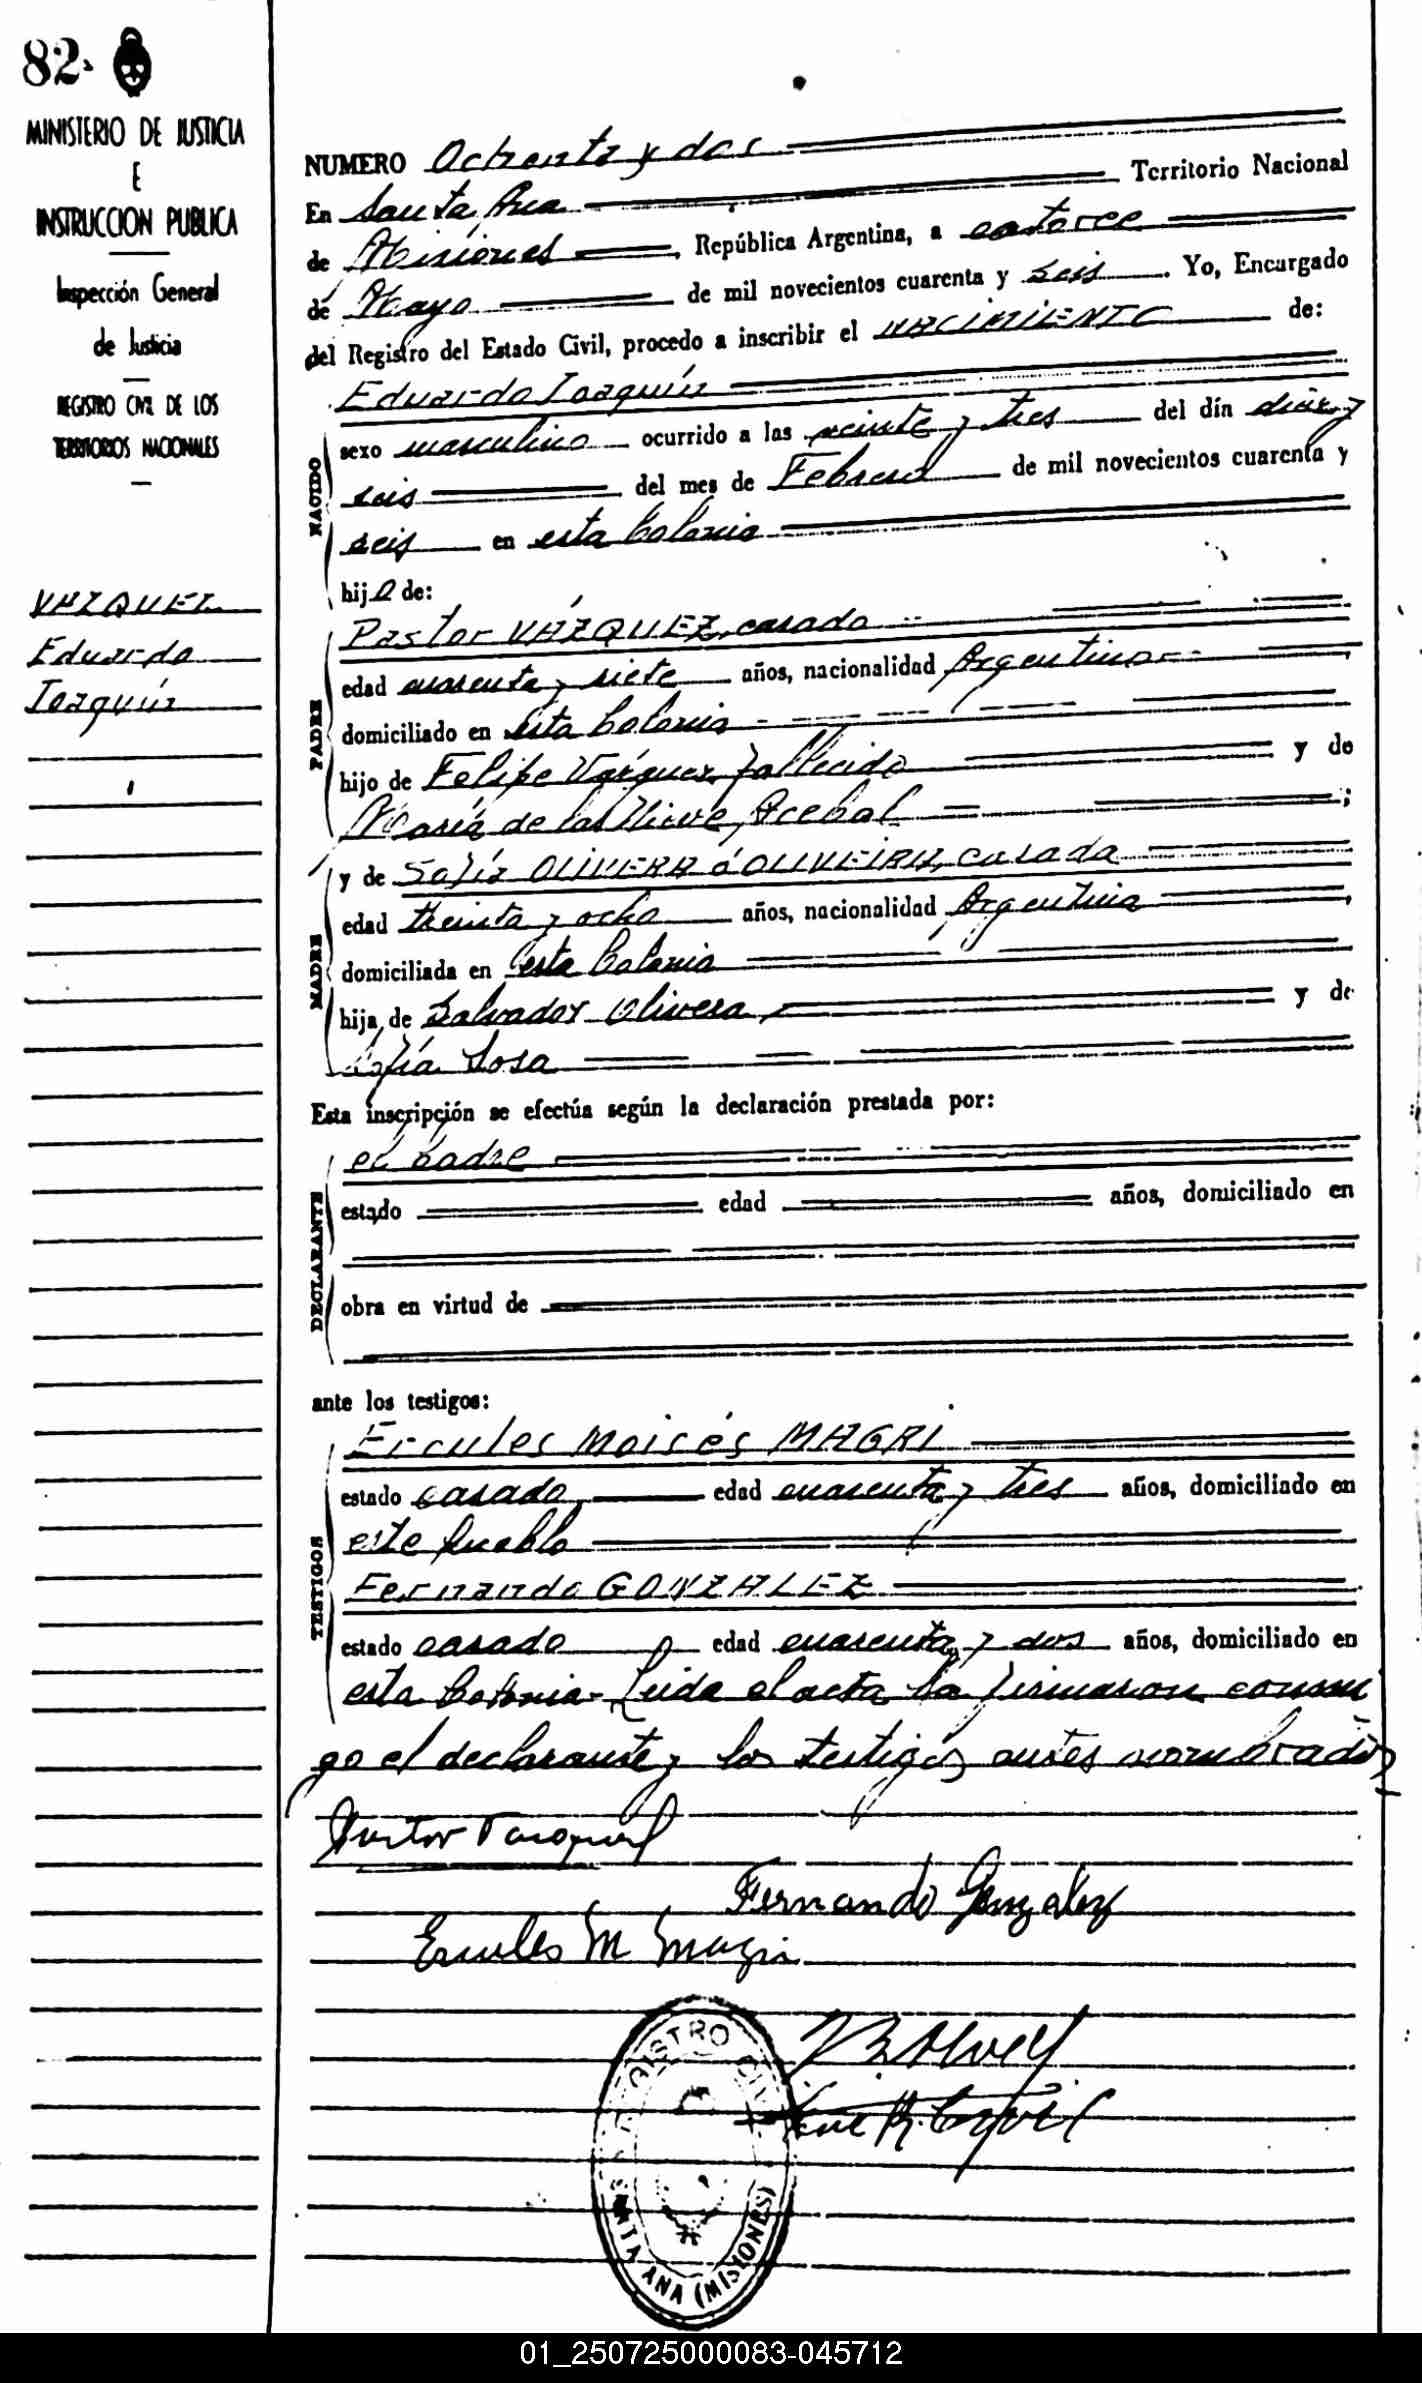 82.
MINISTERIO DE JUSTICIA
E
INSTRUCCION PUBLICA
Inspección General
de Justicia
REGISTRO CIVIL DE LOS
TERRITORIOS NACIONALES
VAZQUEZ
Eduardo
Joaquín
NUMERO Ochenta y dos
En Santa Ana Territorio Nacional
de Misiones, República Argentina, a catorce
de Mayo de mil novecientos cuarenta y seis. Yo, Encargado
del Registro del Estado Civil, procedo a inscribir el NACIMIENTO de:
Eduardo Joaquín
NACIDO
sexo masculino ocurrido a las veinte y tres del día diez y
seis del mes de Febrero de mil novecientos cuarenta y
seis en esta Colonia
hijo de:
PADRE
Pastor VÁZQUEZ, casado
edad cuarenta y siete años, nacionalidad Argentino
domiciliado en esta Colonia
hijo de Felipe Vázquez, fallecido y de
María de las Nieve Acebal;
MADRE
y de Sofía OLIVERA ó OLIVEIRA, casada
edad treinta y ocho años, nacionalidad Argentina,
domiciliada en esta Colonia
hija de Salvador Olivera, y de
Sofía Sosa
Esta inscripción se efectúa según la declaración prestada por:
DECLARANTE
el padre
estado edad años, domiciliado en
obra en virtud de
ante los testigos:
TESTIGOS
Ercules Moisés MAGRI
estado casado edad cuarenta y tres años, domiciliado en
este Pueblo
Fernando GONZALEZ
estado casado edad cuarenta y dos años, domiciliado en
esta Colonia. Leida el acta la firmaron conmi
go el declarante y los testigos antes nombrados
Pastor Vazquez
Fernando Gonzalez
Ercules M Magri
REGISTRO CIVIL
SANTA ANA (MISIONES)
01_250725000083-045712